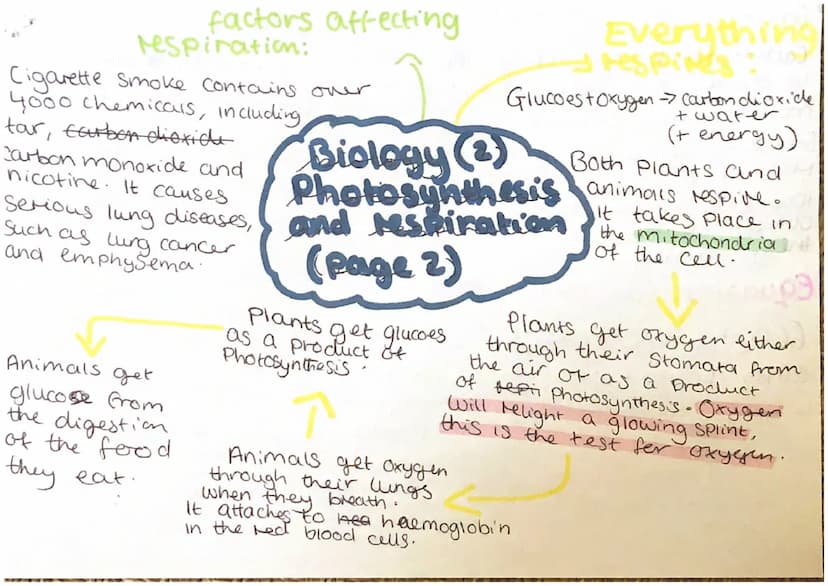 factors affecting
respiration:
Cigarette smoke contains over
4,000 chemicals, including
tar, carbon dioxide
carbon monoxide and
nicotine. It causes
serious lung diseases,
such as lung cancer
and emphysema.
Biology (2)
Photosynthesis
and respiration
(page 2)
Everything
respires:
Glucoes + oxygen → carbon dioxide
+ water
(+ energy)
Both plants and
animals respire.
It takes place in
the mitochondria
of the cell.
Plants get oxygen either
through their stomata from
the air or as a product
of photosynthesis. Oxygen
will relight a glowing splint,
this is the test for oxygen.
Animals get oxygen
through their lungs
when they breath.
It attaches to hea haemoglobin
in the red blood cells.
Plants get glucoes
as a product of
Photosynthesis.
Animals get
glucose from
the digestion
of the food
they eat.